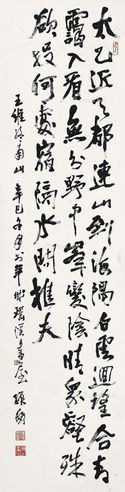 太乙近天都連山到海隅白雲迴望合青
靄入看無分野中峯變陰晴衆壑殊
欲投何處宿隔水問樵夫
王維終南山辛巳冬月